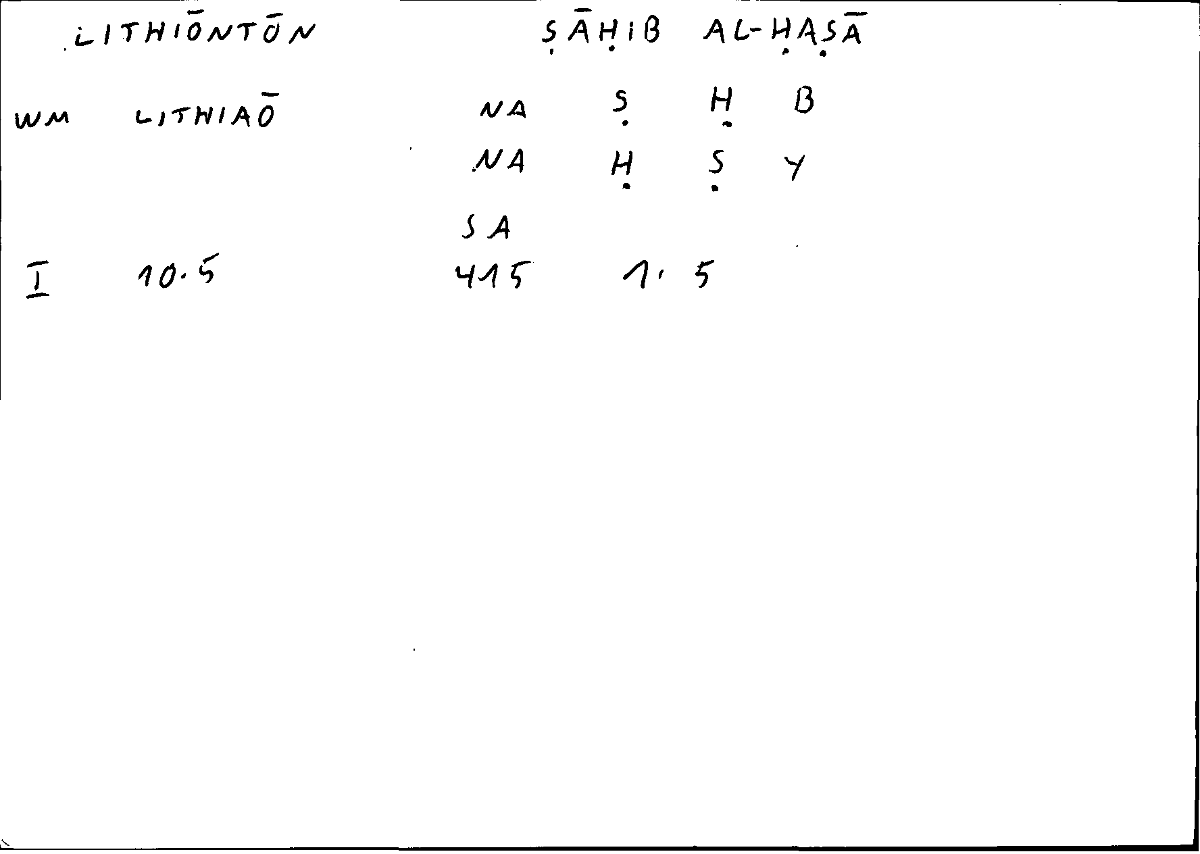 LITHIŌNTŌN ṢĀḤIB AL-ḤAṢĀ
WM LITHIAŌ NA Ṣ Ḥ B
NA Ḥ Ṣ Y
SA
I 10.5 415 1. 5